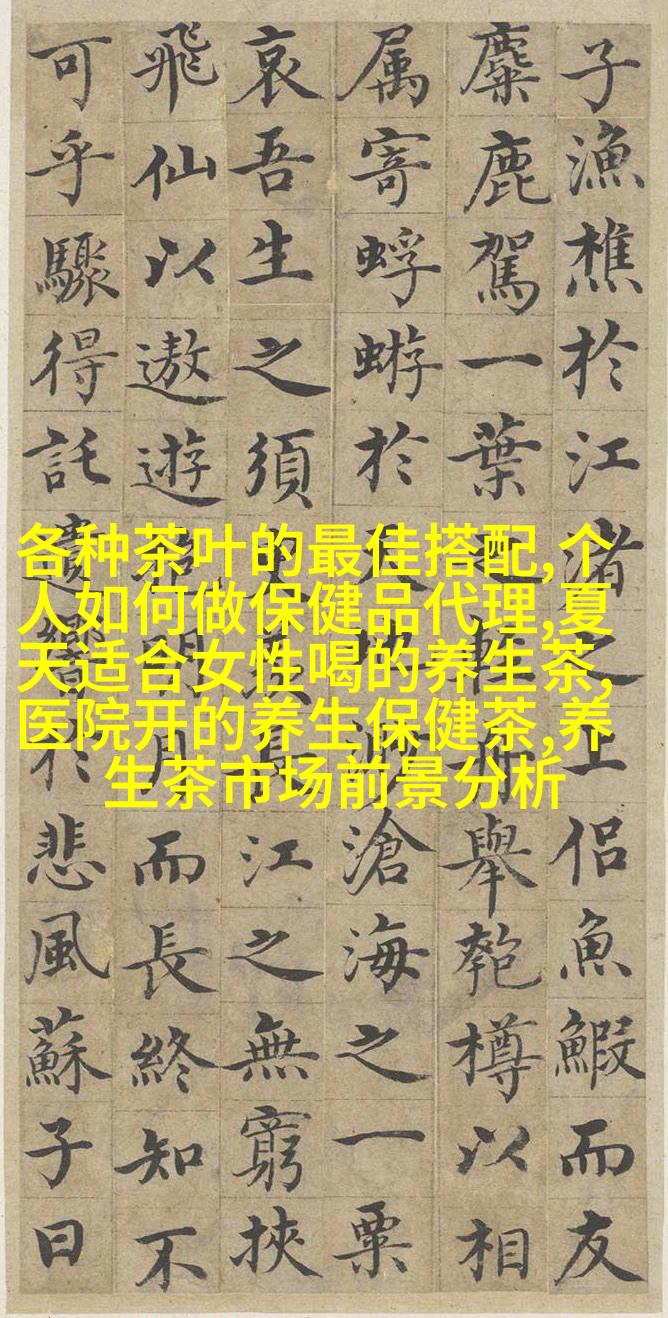 子漁樵於江渚之上侶魚鰕而友
麋鹿駕一葉之輕舟舉匏樽以相
属寄蜉蝣於天地渺滄海之一粟
哀吾生之須臾羨長江之無窮挾
飛仙以遨遊抱明月而長終知不
可乎驟得託遺響於悲風蘇子曰
各种茶叶的最佳搭配,个
人如何做保健品代理,夏
天适合女性喝的养生茶,
医院开的养生保健茶,养
生茶市场前景分析